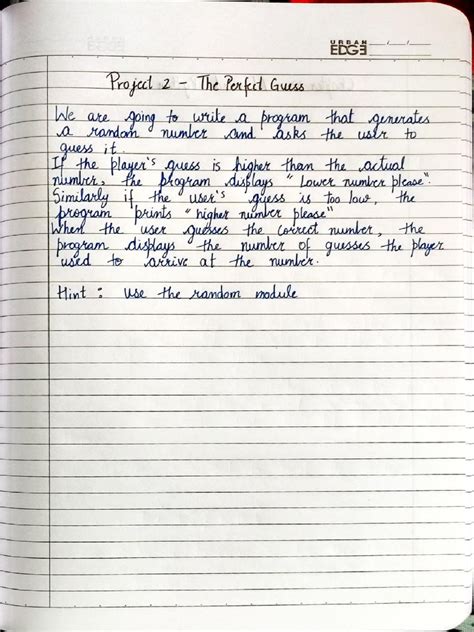 URBAN
EDGE
Project 2 - The Perfect Guess
We are going to write a program that generates
a random number and asks the user to
guess it.
If the player's guess is higher than the actual
number, the program displays "Lower number please".
Similarly if the user's guess is too low, the
program prints "higher number please"
When the user guesses the correct number, the
program displays the number of guesses the player
used to arrive at the number.
Hint : Use the random module